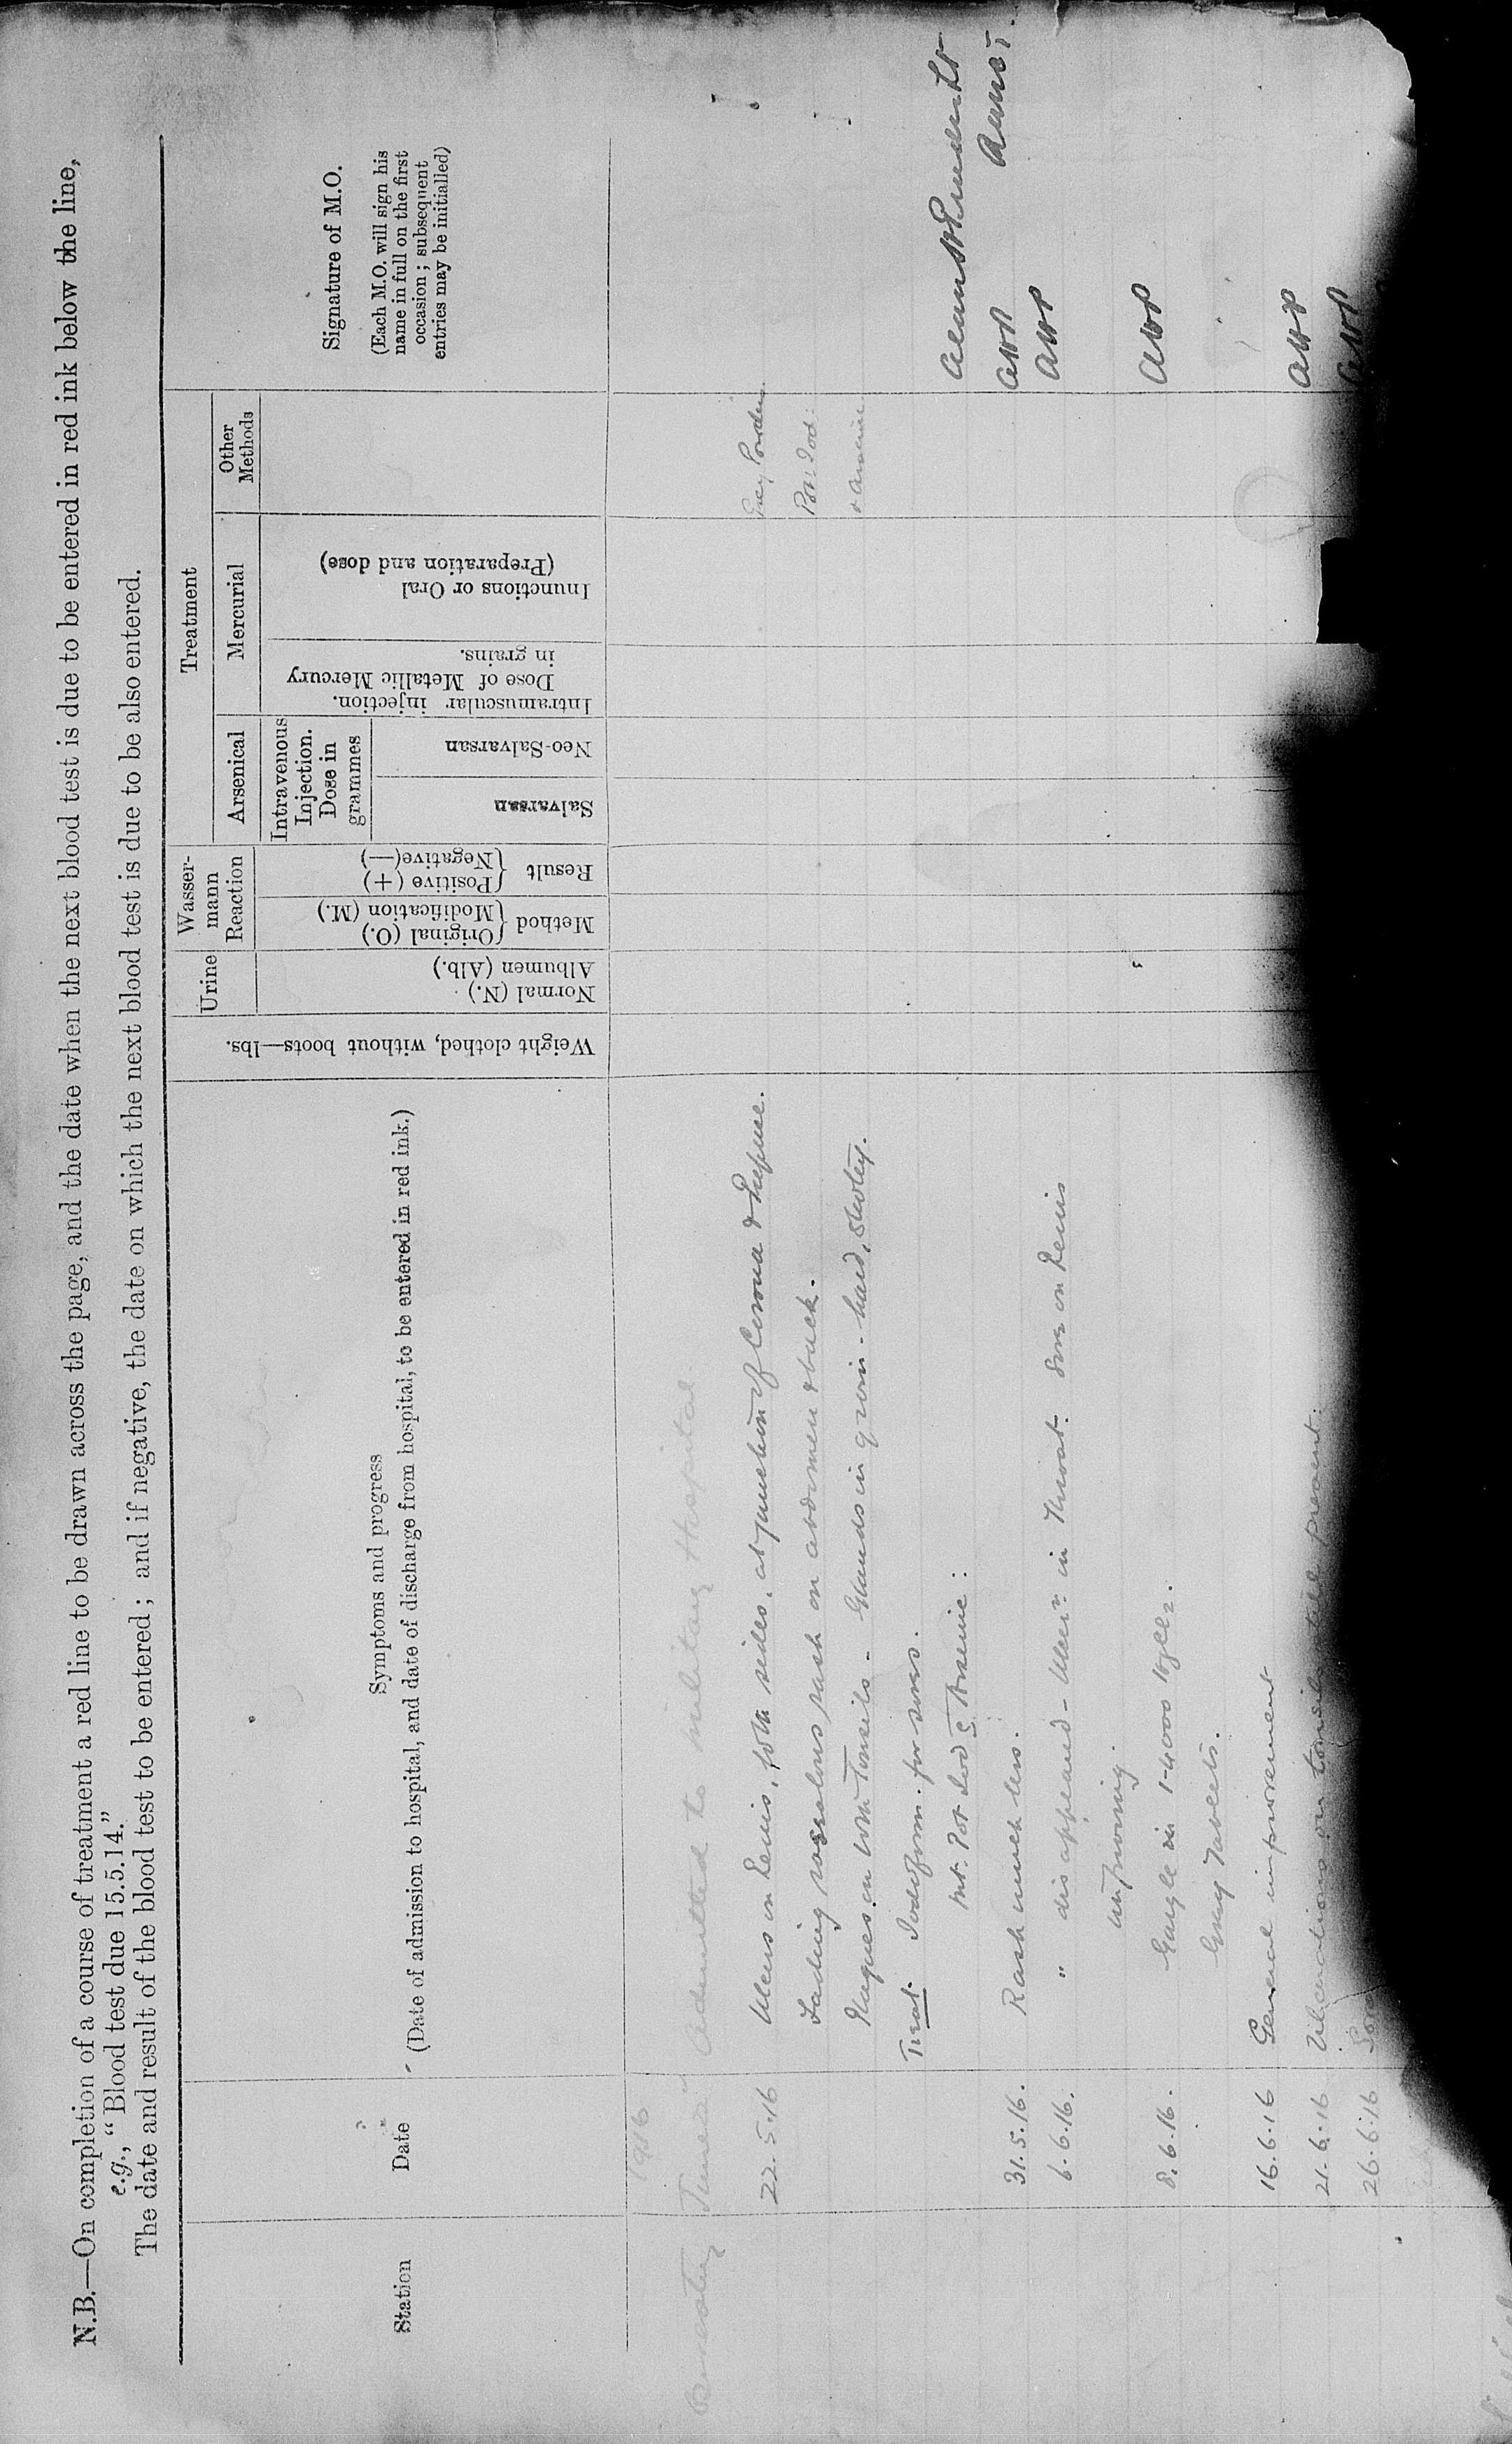 N.B.—On completion of a course of treatment a red line to be drawn across the page, and the date when the next blood test is due to be entered in red ink below the line,
e.g., “Blood test due 15.5.14.”
The date and result of the blood test to be entered; and if negative, the date on which the next blood test is due to be also entered.
Station
Date
Symptoms and progress
(Date of admission to hospital, and date of discharge from hospital, to be entered in red ink.)
Weight clothed, without boots—lbs.
Urine
Normal (N.)
Albumen (Alb.)
Wasser-
mann
Reaction
Method { Original (O.)
Modification (M.)
Result { Positive (+)
Negative (—)
Treatment
Arsenical
Intravenous
Injection.
Dose in
grammes
Salvarsan
Neo-Salvarsan
Mercurial
Intramuscular injection.
Dose of Metallic Mercury
in grains.
Inunctions or Oral
(Preparation and dose)
Other
Methods
Signature of M.O.
(Each M.O. will sign his
name in full on the first
occasion; subsequent
entries may be initialled)
1916
Admitted to Military Hospital
22.5.16 Ulcers on Penis, both sides, at junction of Corona & Prepuce. Grey Powders
Fading roseolous rash on abdomen & back. Pot. Iod:
Plaques on both Tonsils - Glands in groin - hard, shotty. & Arsenic
Treat. Iodoform. for sores.
Mt. Pot Iod c Arsenic:
31.5.16. Rash much less. AWP
6.6.16. " disappeared - Ulcer in Throat. Sores on Penis AWP
improving.
8.6.16. Gargle in 1-4000 HgCl2. AWP
Grey Tablets.
16.6.16 General improvement
21.6.16 Ulcerations on tonsils still present. AWP
26.6.16 AWP